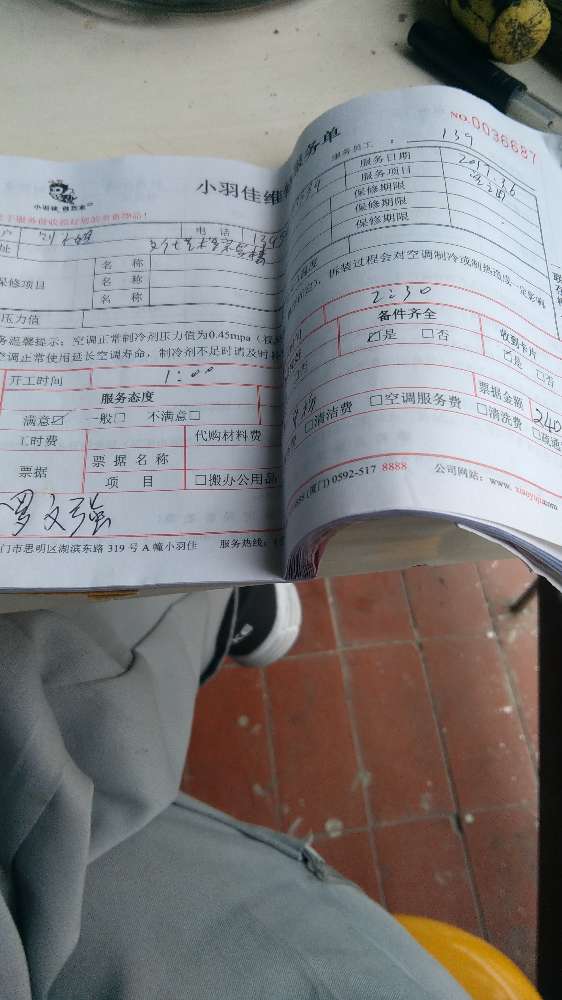 小羽佳维 服务单
NO.0036687
服务员工 : 139
小羽佳 做到家
电话 139
服务日期 2017.3.6
服务项目
保修期限
保修期限
保修期限
保修项目
名称
名称
名称
压力值
温馨提示:空调正常制冷剂压力值为0.45mpa
空调正常使用延长空调寿命,制冷剂不足时请及时
拆装过程会对空调制冷或制热造成一定影响
开工时间 1:00
2:30
服务态度
备件齐全
收到卡片
满意☑ 一般□ 不满意□
☑是 □否
☑是 □否
工时费
代购材料费
票据金额 240
票据
票据名称
项目
□搬办公用品
□清洁费 □空调服务费 □清洗费 □疏通
罗文强
门市思明区湖滨东路 319 号 A 幢小羽佳 服务热线:
(厦门) 0592-517 8888 公司网站:www.xiaoyujia.com